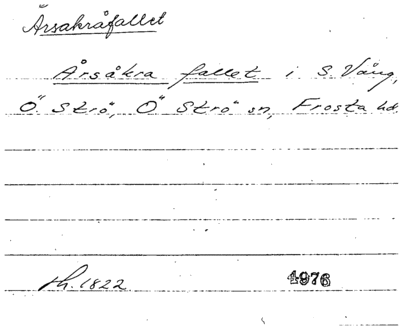 Ärsakråfallet
Årsåkra fallet i S. Vång,
Ö. Strö, Ö Strö sn, Frosta hd.
th. 1822 4976